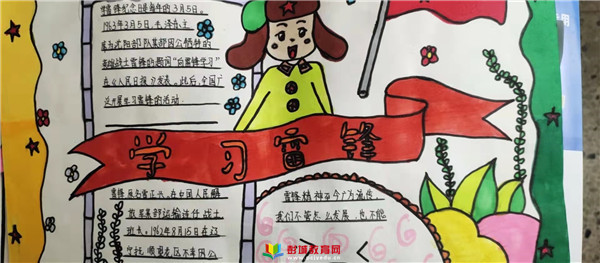 雷锋纪念日是每年的3月5日。
1963年3月5日,毛泽东
为沈阳部队某部因公牺牲的
英雄战士雷锋的题词"向雷锋学习"
在《人民日报》发表。此后,全国广
泛开展学习雷锋的活动.
学习雷锋
雷锋原名雷正兴,在中国人民解
放军某部运输连任战士
班长.1962年8月15日在辽
宁抚顺望花区不幸因公
雷锋精神至今广为流传.
我们不管怎么发展 也不能
彭城教育网